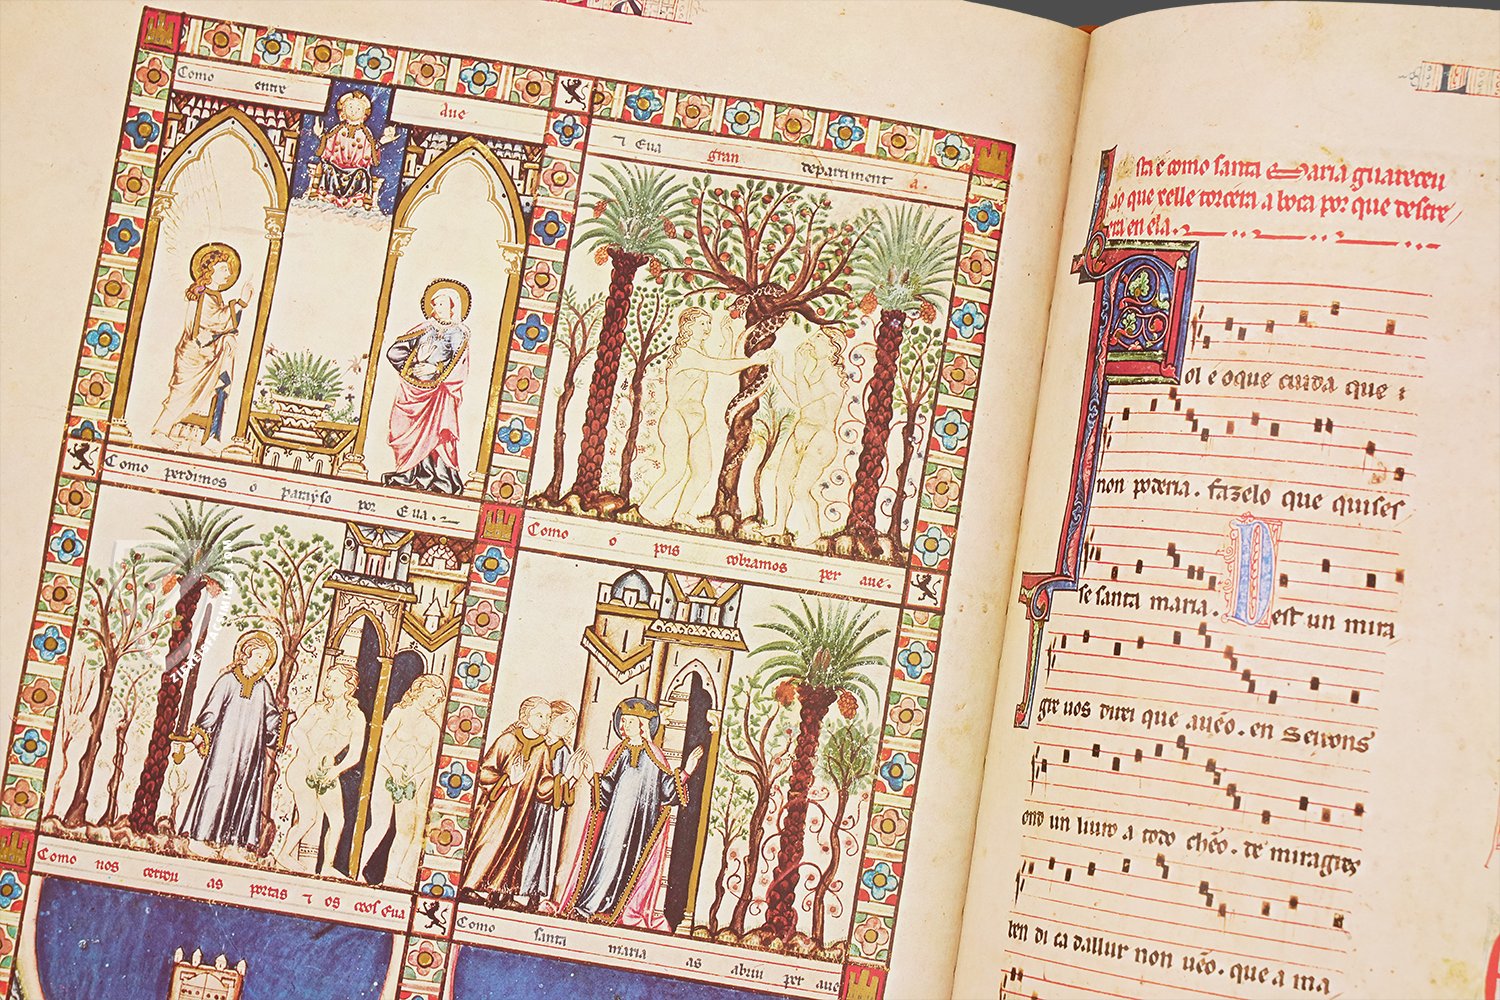 Como entre aue
⁊ Eua gran departiment á.
Como perdimos o parayso por Eua.
Como o pois cobramos per aue.
Como nos cerrou as portas ⁊ os ceos Eua
Como santa maria as abriu per aue
sta é como santa Maria guareceu
que xelle torcera a boca por que descre
era en ela.
ol é o que cuida que
non poderia. fazelo que quises
se santa maria. Dest un mira
gre uos direi que auẽo. en Seixons
ond un liuro a todo chẽo. de miragres
ben di ca dallur non uẽo. que a ma